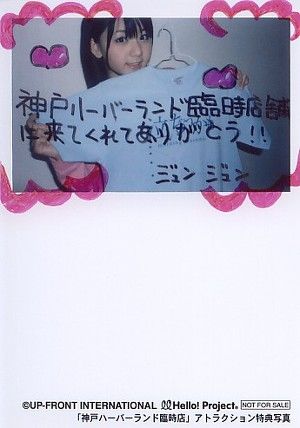 神戸ハーバーランド臨時店舗
に来てくれてありがとう!!
ジュン ジュン
©UP-FRONT INTERNATIONAL Hello! Project. NOT FOR SALE
「神戸ハーバーランド臨時店」アトラクション特典写真